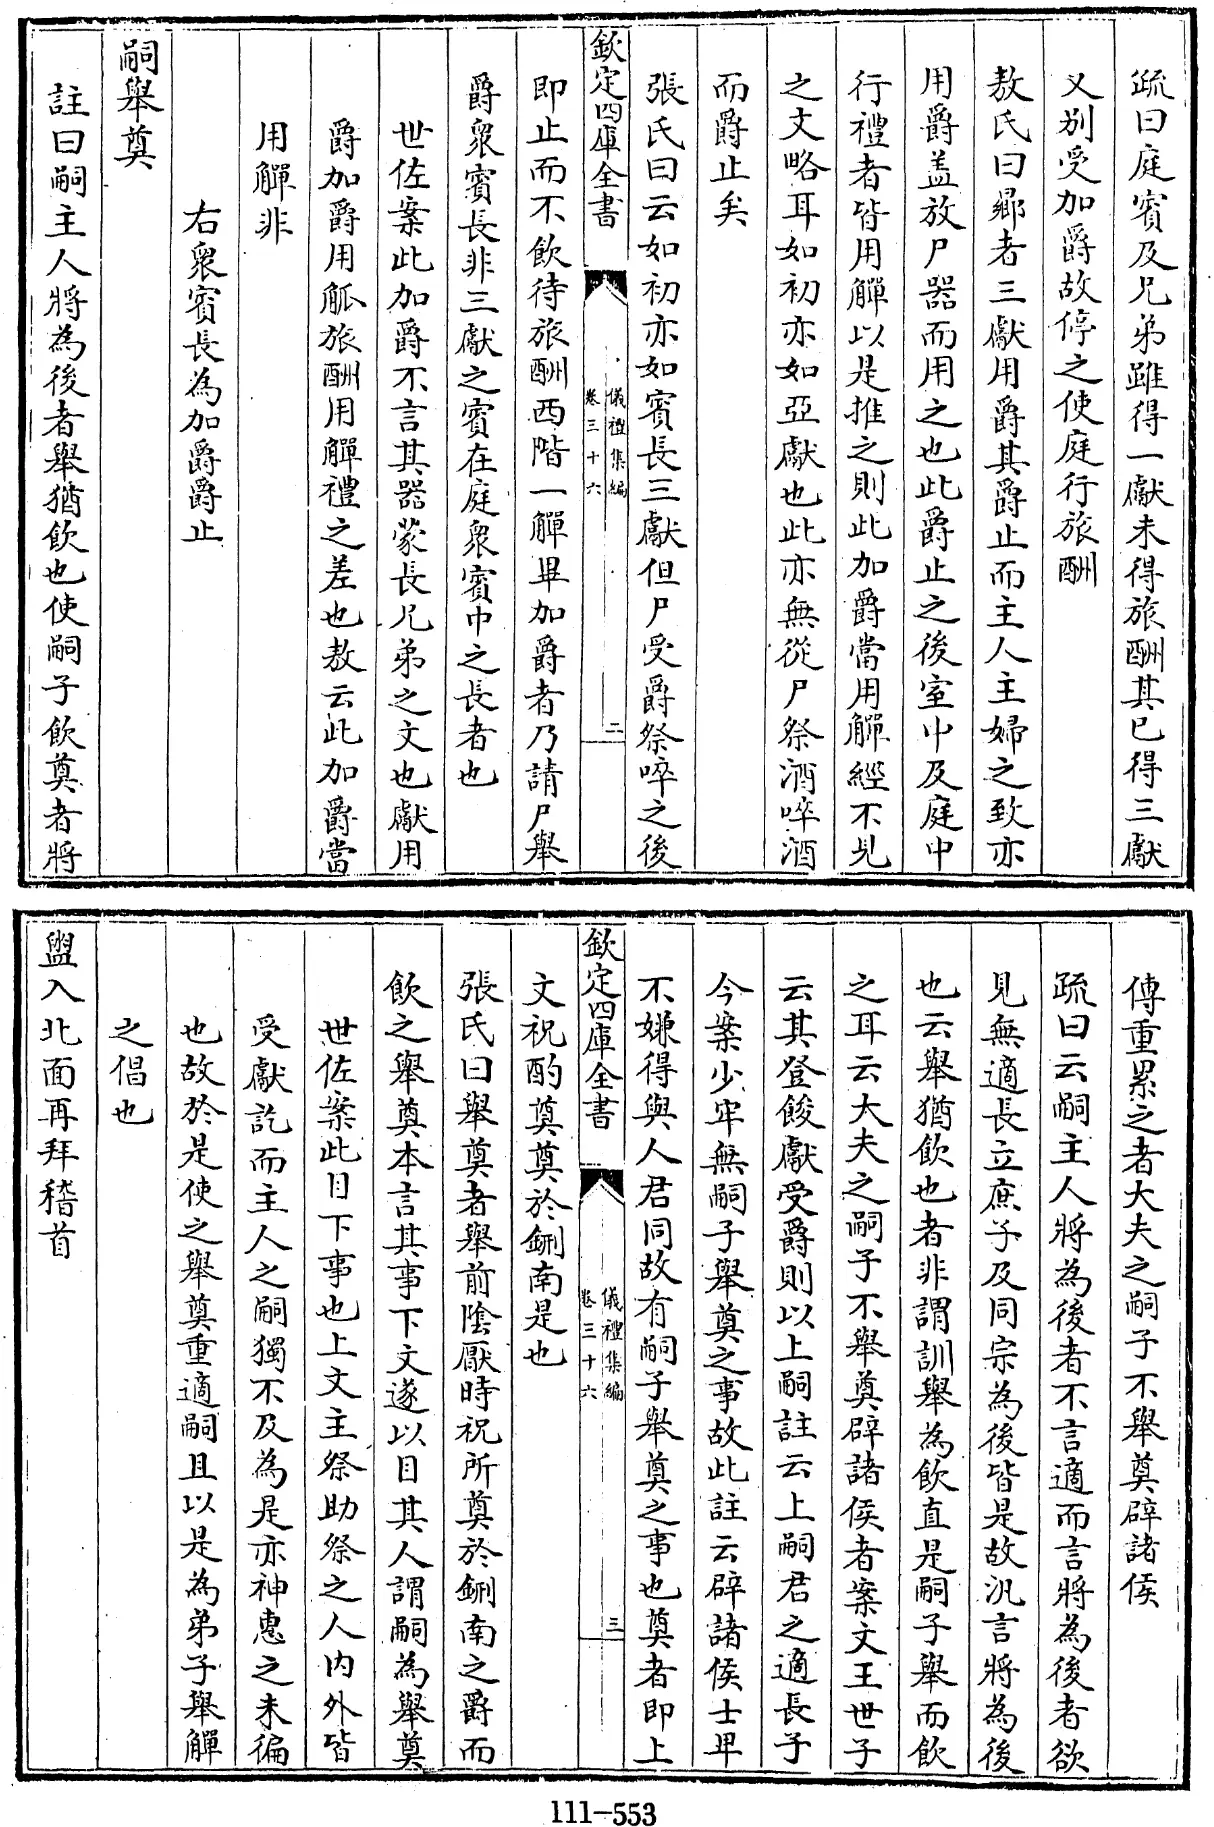 疏曰庭賓及兄弟雖得一獻未得旅酬其已得三獻
又别受加爵故停之使庭行旅酬
敖氏曰鄉者三獻用爵其爵止而主人主婦之致亦
用爵盖放尸器而用之也此爵止之後室中及庭中
行禮者皆用觶以是推之則此加爵當用觶經不見
之文略耳如初亦如亞獻也此亦無從尸祭酒啐酒
而爵止矣
張氏曰云如初亦如賓長三獻但尸受爵祭啐之後
欽定四庫全書
儀禮集編
卷三十六
二
即止而不飲待旅酬西階一觶畢加爵者乃請尸舉
爵衆賓長非三獻之賓在庭衆賓中之長者也
世佐案此加爵不言其器蒙長兄弟之文也獻用
爵加爵用觚旅酬用觶禮之差也敖云此加爵當
用觶非
右衆賓長為加爵爵止
嗣舉奠
註曰嗣主人將為後者舉猶飲也使嗣子飲奠者將
傳重累之者大夫之嗣子不舉奠辟諸侯
疏曰云嗣主人將為後者不言適而言將為後者欲
見無適長立庶子及同宗為後皆是故汎言將為後
也云舉猶飲也者非謂訓舉為飲直是嗣子舉而飲
之耳云大夫之嗣子不舉奠辟諸侯者案文王世子
云其登餕獻受爵則以上嗣註云上嗣君之適長子
今案少牢無嗣子舉奠之事故此註云辟諸侯士卑
不嫌得與人君同故有嗣子舉奠之事也奠者即上
欽定四庫全書
儀禮集編
卷三十六
三
文祝酌奠奠於鉶南是也
張氏曰舉奠者舉前陰厭時祝所奠於鉶南之爵而
飲之舉奠本言其事下文遂以目其人謂嗣為舉奠
世佐案此目下事也上文主祭助祭之人内外皆
受獻訖而主人之嗣獨不及為是亦神惠之未徧
也故於是使之舉奠重適嗣且以是為弟子舉觶
之倡也
盥入北面再拜稽首
111-553